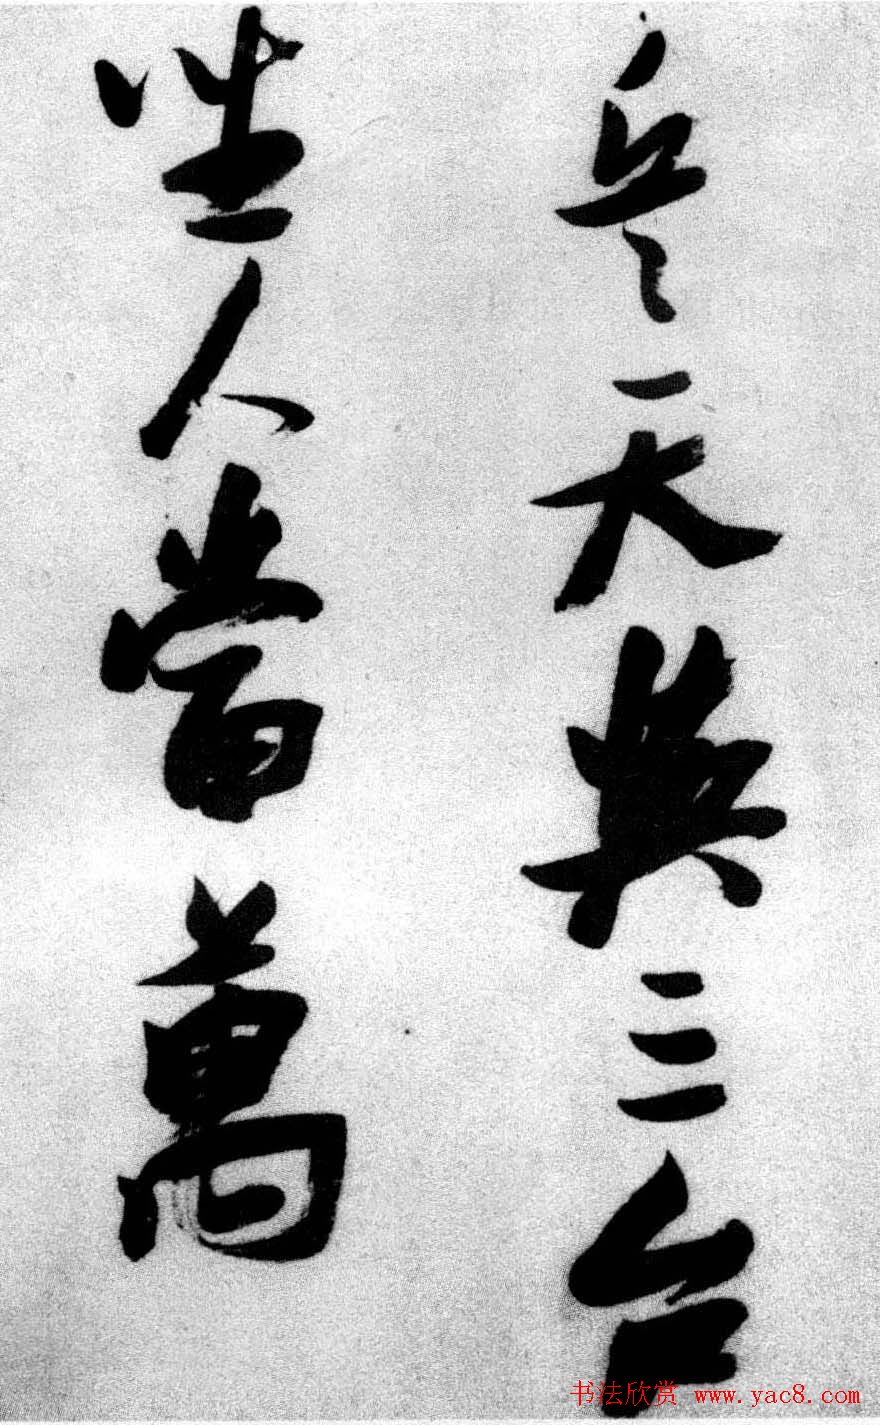 兵天典三台
坐人當萬
书法欣赏 www.yac8.com